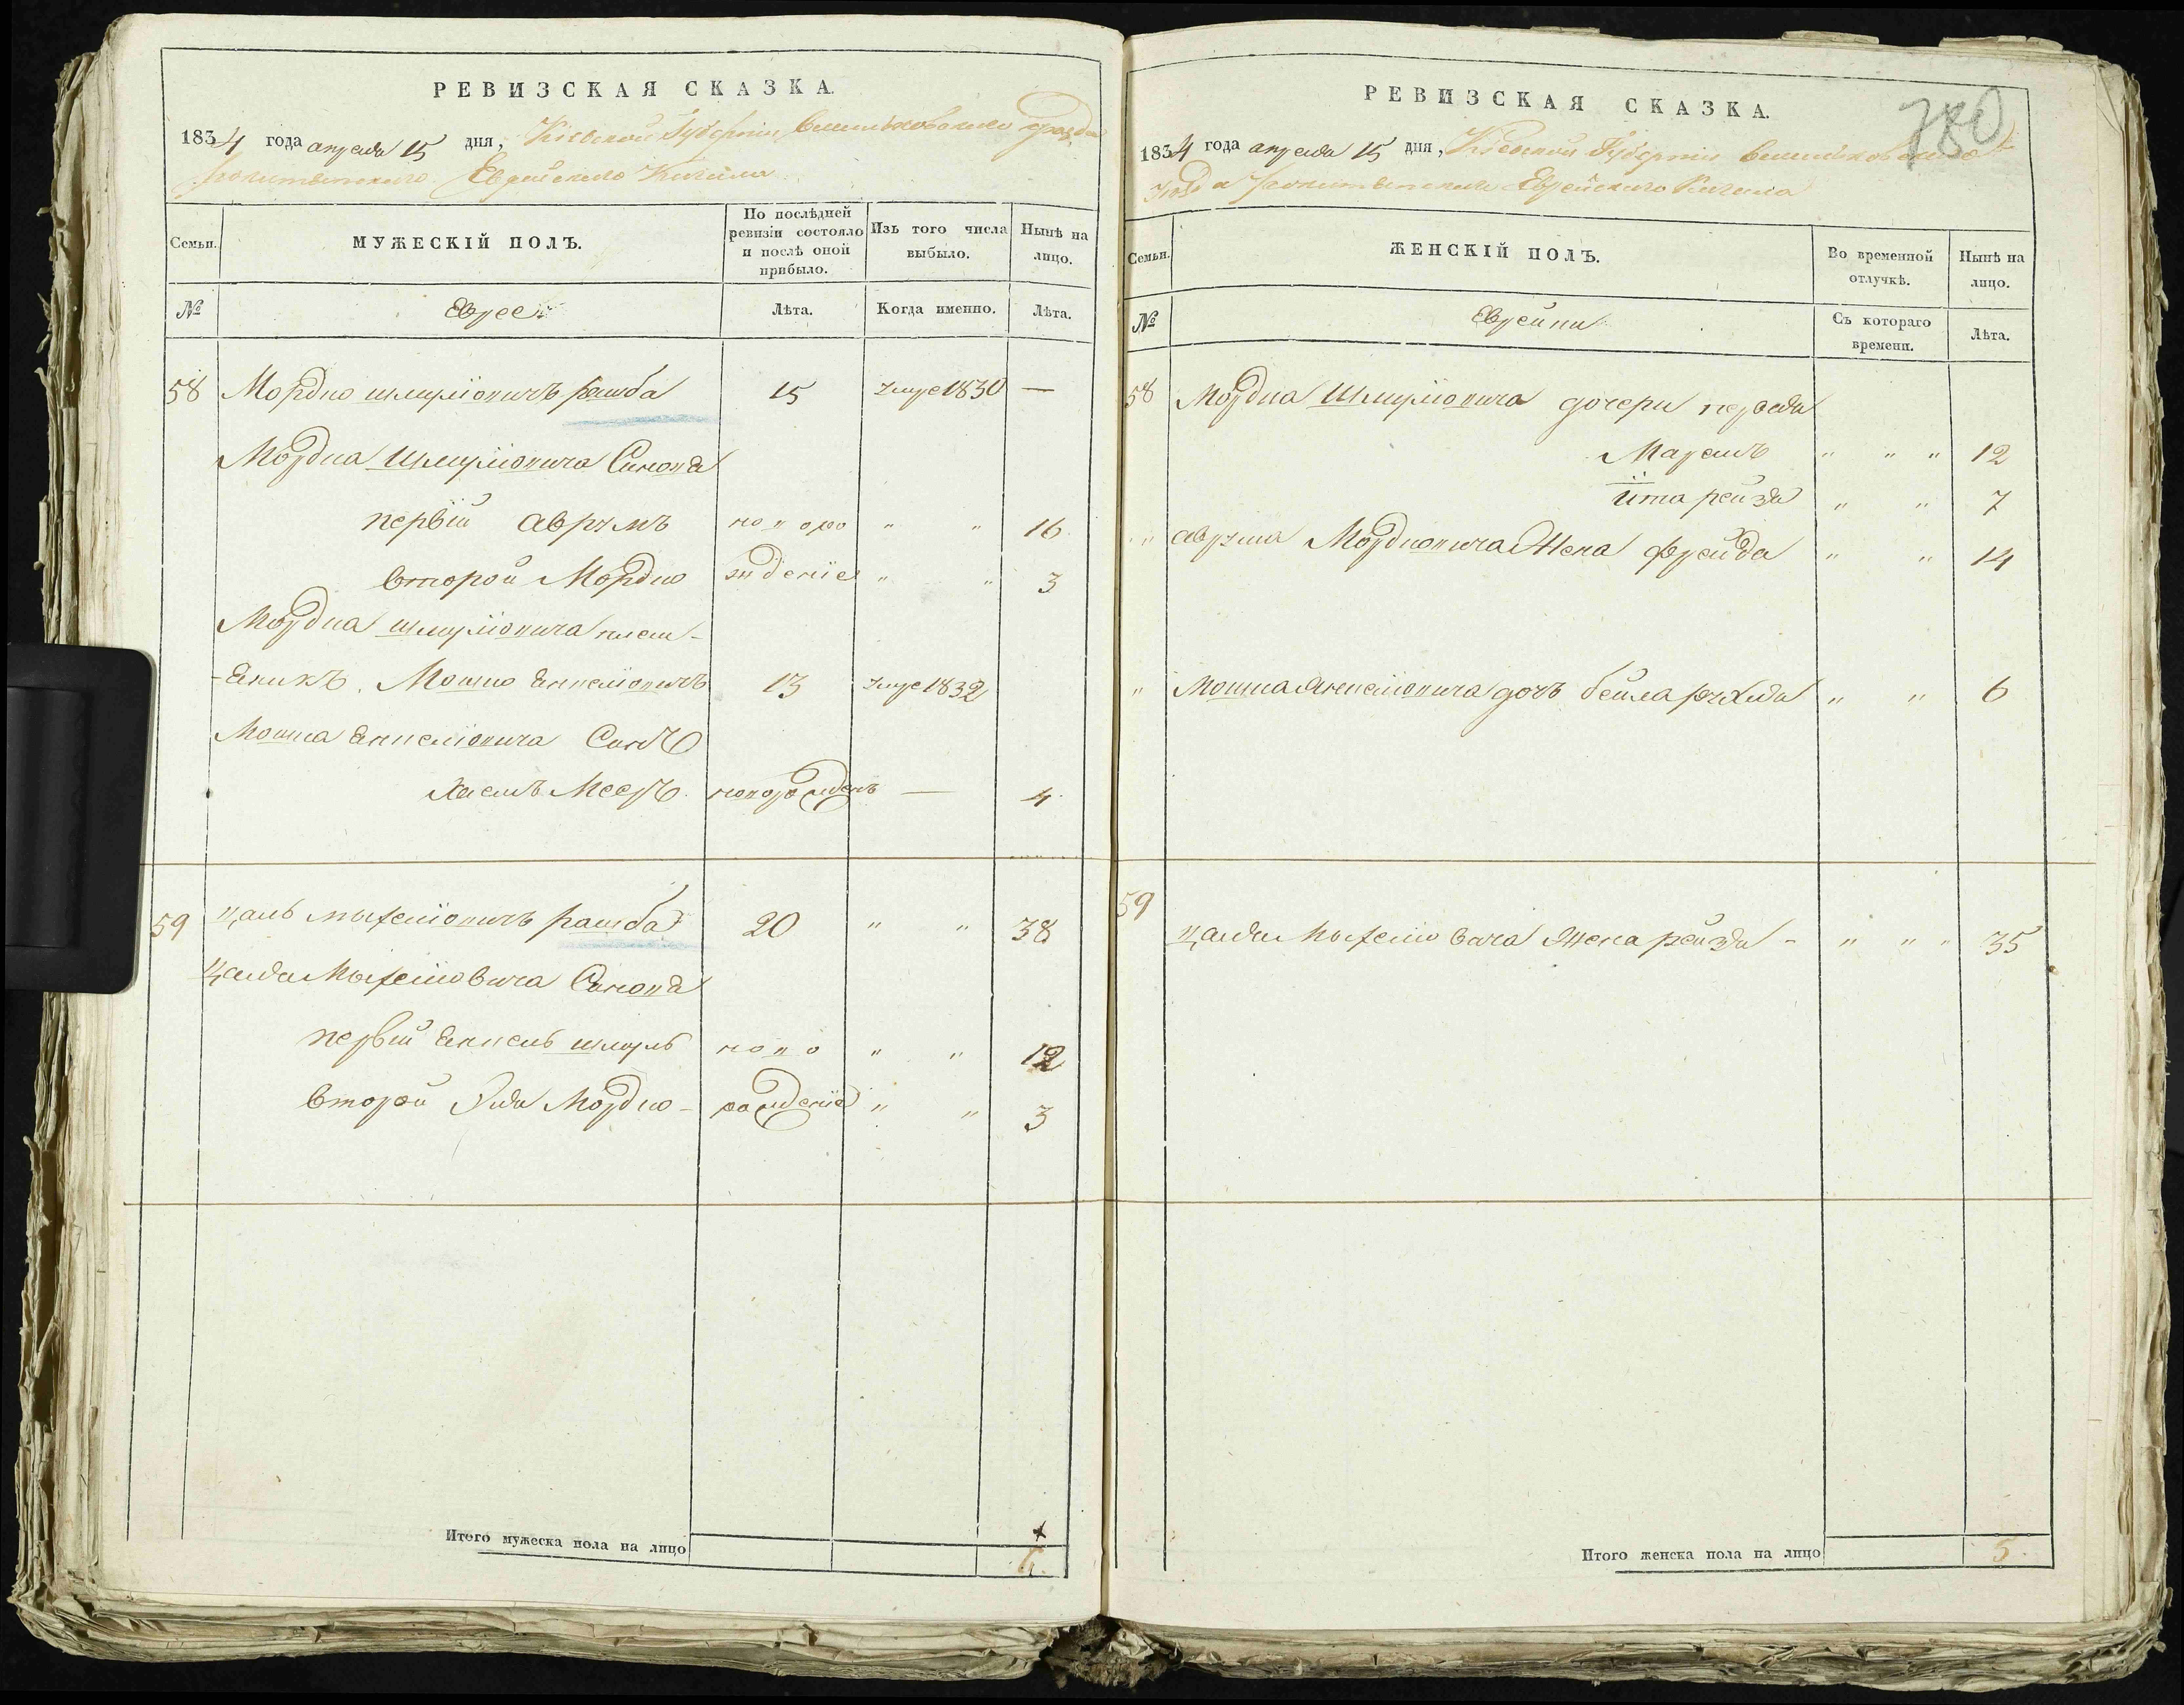 РЕВИЗСКАЯ СКАЗКА.
1834 года апреля 15 дня, Кіевской Губерніи Васильковскаго уезда
Рокитянского Еврейского Кагала
Семьи. МУЖЕСКІЙ ПОЛЪ. По послѣдней ревизіи состояло и послѣ оной прибыло. Изъ того числа выбыло. Нынѣ на лицо.
№ Евреи Лѣта. Когда именно. Лѣта.
58 Мордко Шмуліовичъ рашба 15 умре 1830 —
Мордка Шмуліовича Синовя
первій Аврумъ новоро " " 16
второй Мордко жденіе " " 3
Мордка Шмуліовича плем-
-еникъ. Мошко Янкеліовичъ 13 умре 1832
Мошка Янкеліовича Синъ
Хаемъ Мееръ. новорожденъ — 4
59 Цаль Мыхеліовичъ рашба 20 " " 38
Цаля Мыхелювича Синовя
первій Янкель Шмуль ново " " 12
второй Эля Мордко - рожденіе " " 3
Итого мужеска пола на лицо 6
780
РЕВИЗСКАЯ СКАЗКА.
1834 года апреля 15 дня, Кіевской Губерніи Васильковского
уезда Рокитянского Еврейского Кагала
Семьи. ЖЕНСКІЙ ПОЛЪ. Во временной отлучкѣ. Нынѣ на лицо.
№ Еврейки Съ котораго времени. Лѣта.
58 Мордка Шмуліовича дочери первая
Маремъ " " " 12
Ита рейзя " " 7
" Аврума Мордковича Жена фрейда " " 14
" Мошка Янкеліовича дочъ бейла рухля " " 6
59
Цаля Мыхелювича Жена рейзя - " " " 35
Итого женска пола на лицо 5